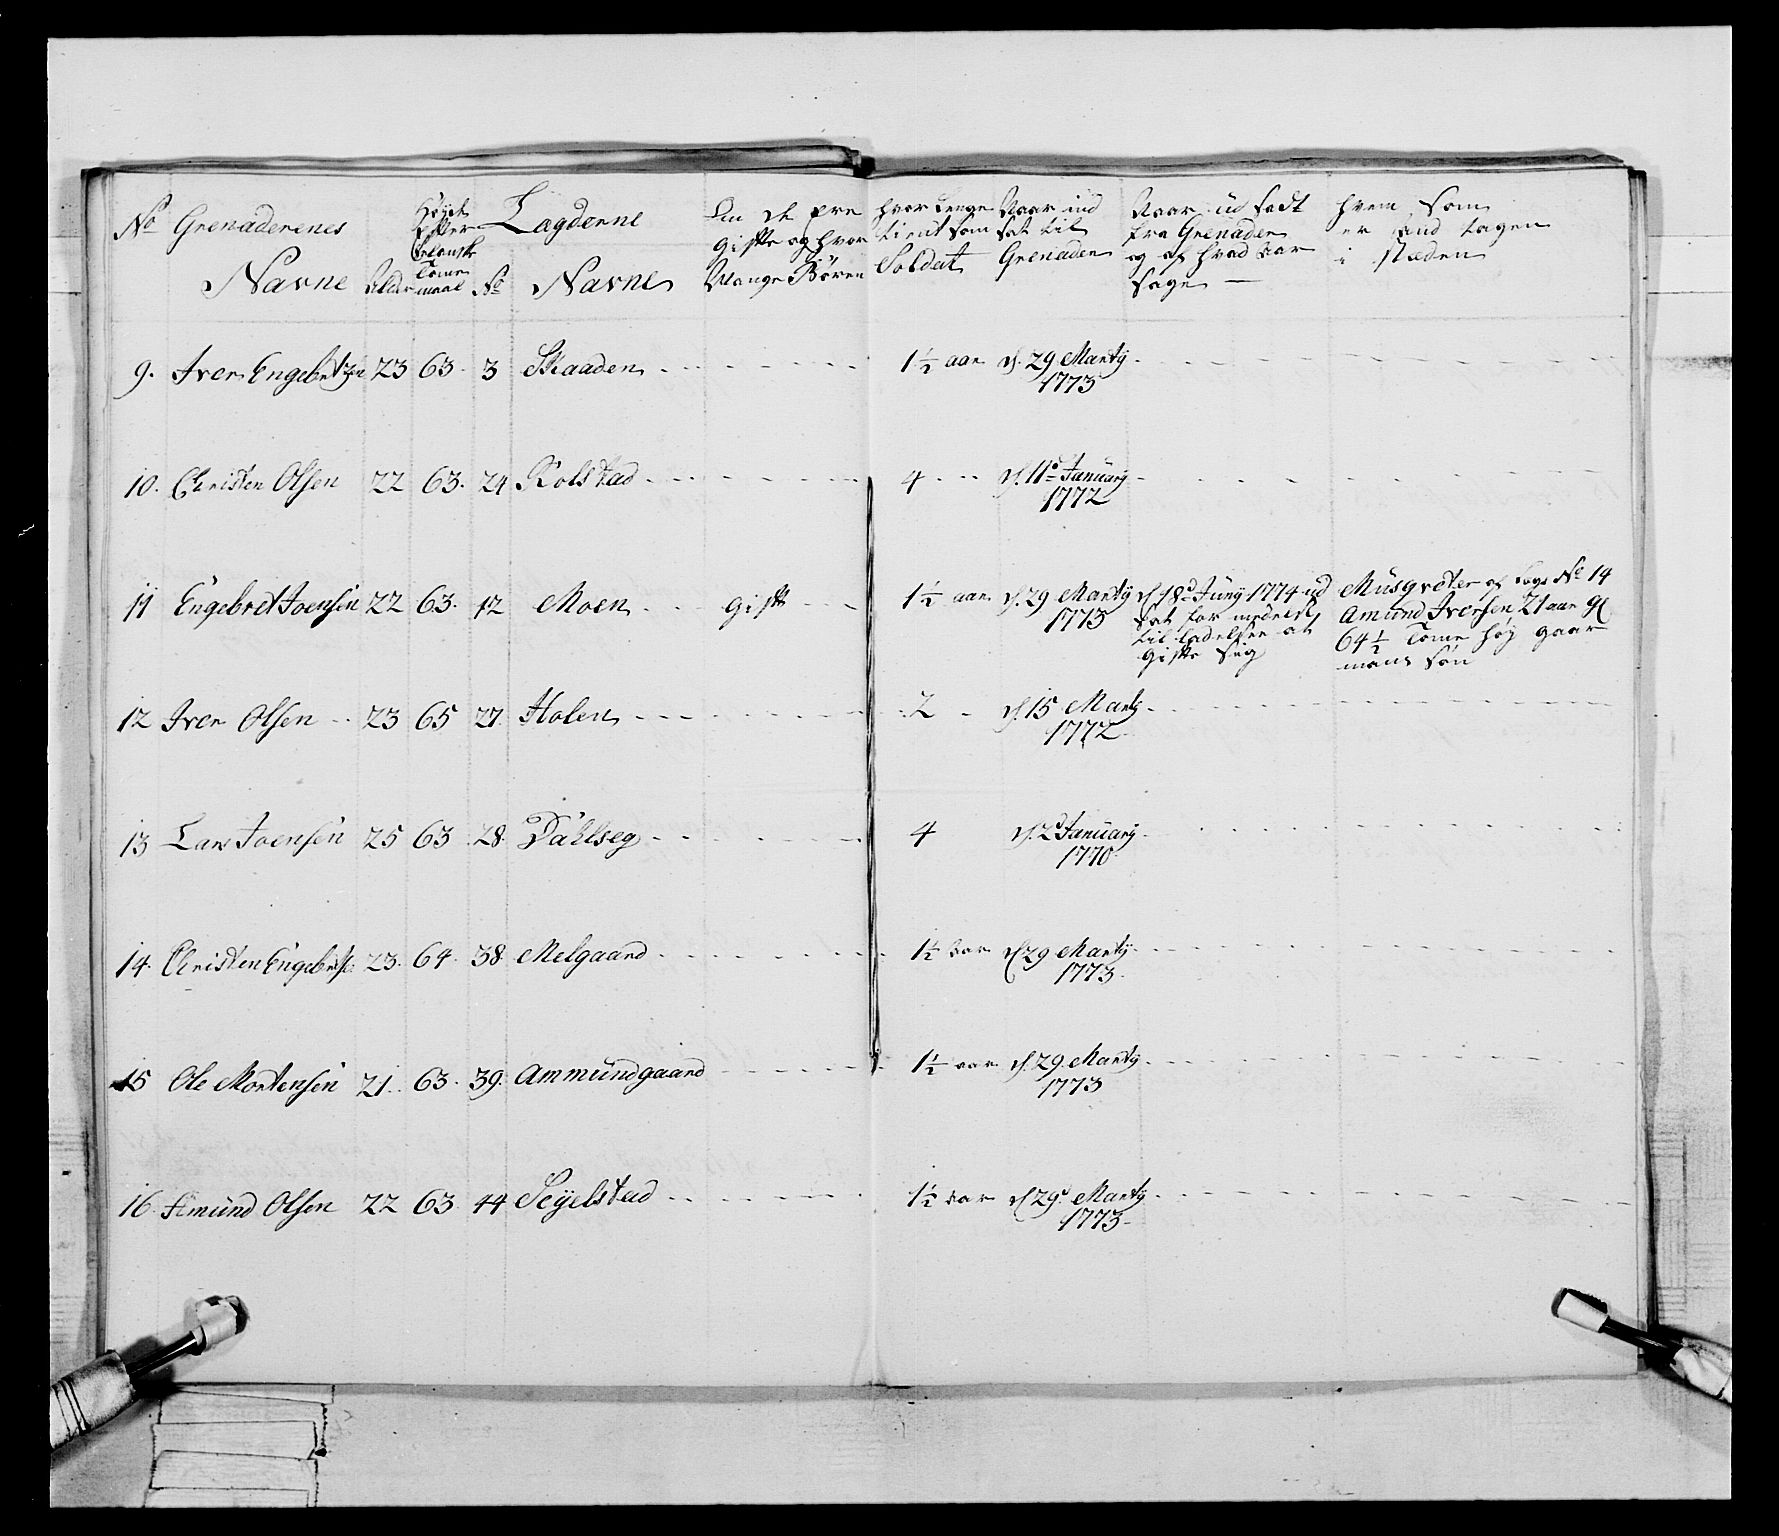 No Grenaderenes Navne
Alder
Høyde efter Tome maal
Lagderne
No Navne
Om de ere gifte og hvor Mange Børen
hvor Lenge tient som Soldat
Naar ind sat til Grenader
Naar ud sadt fra Grenader og af hvad aar sage
hvem som er ind tagen i stæden
9. Iver Engebretzen 23 63. 3 Skaaden 1 1/2 aar d. 29 Marty 1773
10. Christen Olsen 22 63. 24 Kolstad 4 d. 11 January 1772
11 Engebret Joensen 22 63. 12 Moen gift 1 1/2 aar d. 29 Marty 1773 d 19d Juny 1774 ud sat for meddelt til ladelse at gifte sig Musqveter af Lagd No 14 Amund Iversen 21 aar gl 64 1/2 Tome høy gaar mans søn
12 Iver Olsen 23 65 27 Holen 2 d. 15 Marty 1772
13 Lars Joensen 25 63 28. Dahlseg 4 d. 2d January 1770
14. Christen Engebretsen 23. 64. 38. Melgaard 1 1/2 aar d 29 Marty 1773
15 Ole Mortensen 21. 63. 39. Ammundgaard 1 1/2 aar d. 29. Marty 1773
16 Amund Olsen 22 63 44 Segelstad 1 1/2 aar d 29d Marty 1773